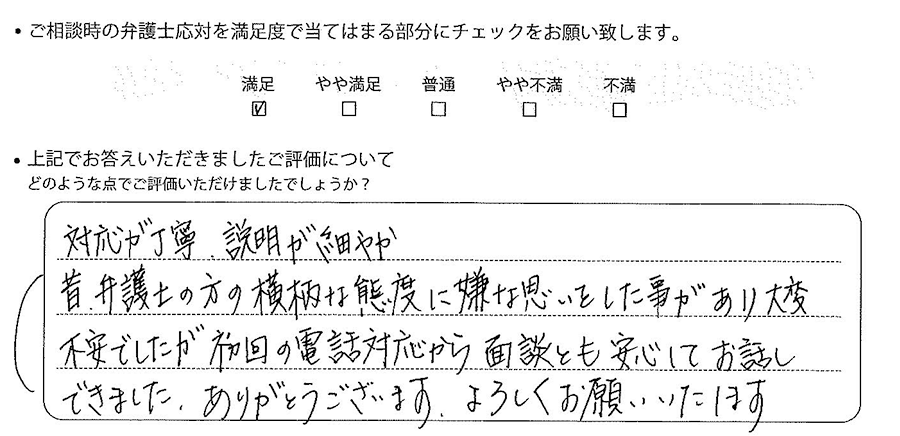 ・ご相談時の弁護士応対を満足度で当てはまる部分にチェックをお願い致します。
満足 やや満足 普通 やや不満 不満
☑ □ □ □ □
・上記でお答えいただきましたご評価について
どのような点でご評価いただけましたでしょうか？
対応が丁寧、説明が細やか
昔、弁護士の方の横柄な態度に嫌な思いをした事があり大変
不安でしたが初回の電話対応から面談とも安心してお話し
できました。ありがとうございます。よろしくお願いいたします